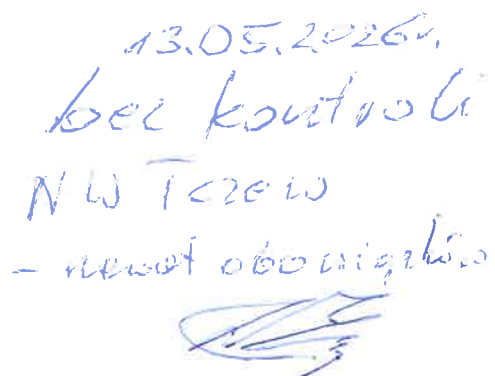 13.05.2026r.
bez kontroli
NW Tczew
- nawał obowiązków